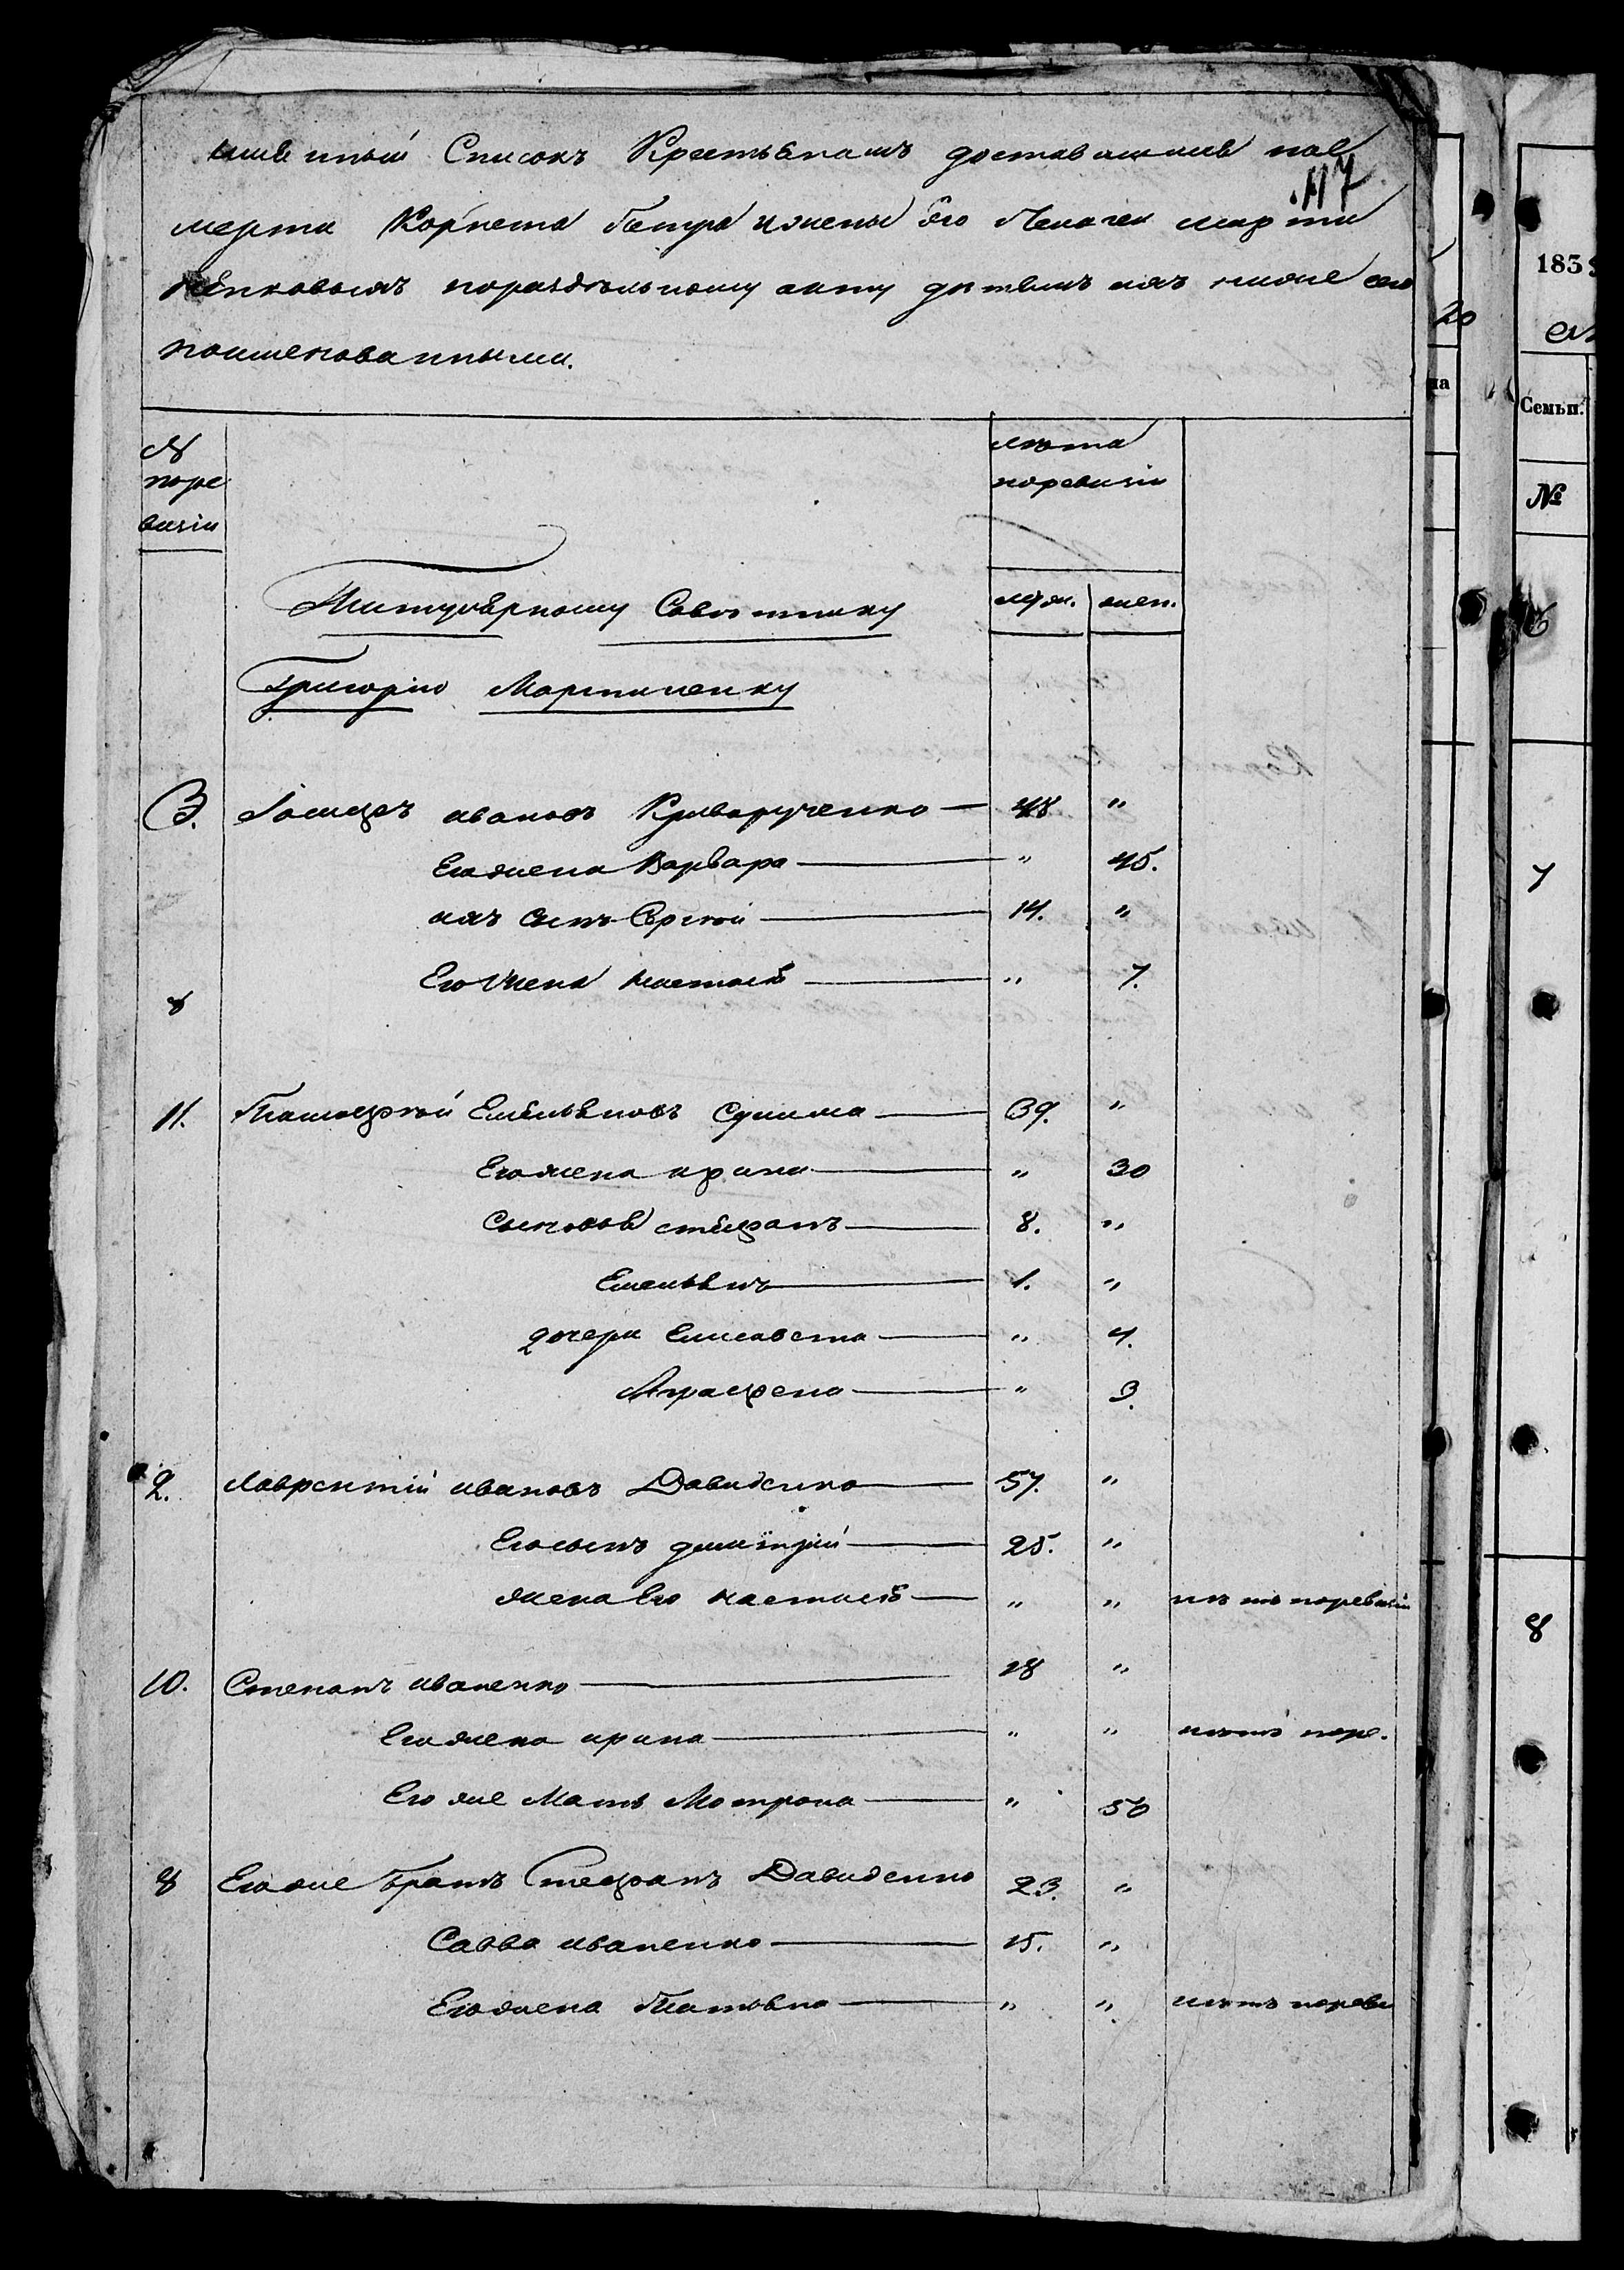 Именный Списокъ Крестьянамъ доставшимся пос
117
мерти Корнета Петра и жены Его Пелагеи Марти
ненковыхъ пораздельному акту детямъ ихъ ниже сего
поименованными.
№
поре
визіи
лета
поревизіи
муж. жен.
Титулярному Советнику
Григорію Мартиненку
3. Іосифъ ивановъ Криворученко — 48 "
Его жена Варвара — " 45.
ихъ Сынъ Сергей — 14. "
Его Жена Настасія — " 7.
8
11. Тимофей Емельяновъ Сушма — 39. "
Его жена ирина — " 30
Сыновья стефанъ — 8. "
Емельянъ — 1. "
дочери Елисавета — " 4.
Аграфена — " 3.
2. Лаврентій ивановъ Давиденко — 57. "
Его сынъ димитрій — 25. "
жена Его настасія — " " нетъ поревизіи
10. Степанъ иваненко — 18 "
Его жена ирина — " " нетъ поре.
Его же Мать Мотрона — " 50
8 Его же братъ Стефанъ Давиденко 23. "
Савва иваненко — 15. "
Его жена Татьяна — " " нетъ пореви
20
на
183
Семьи.
№
7
8